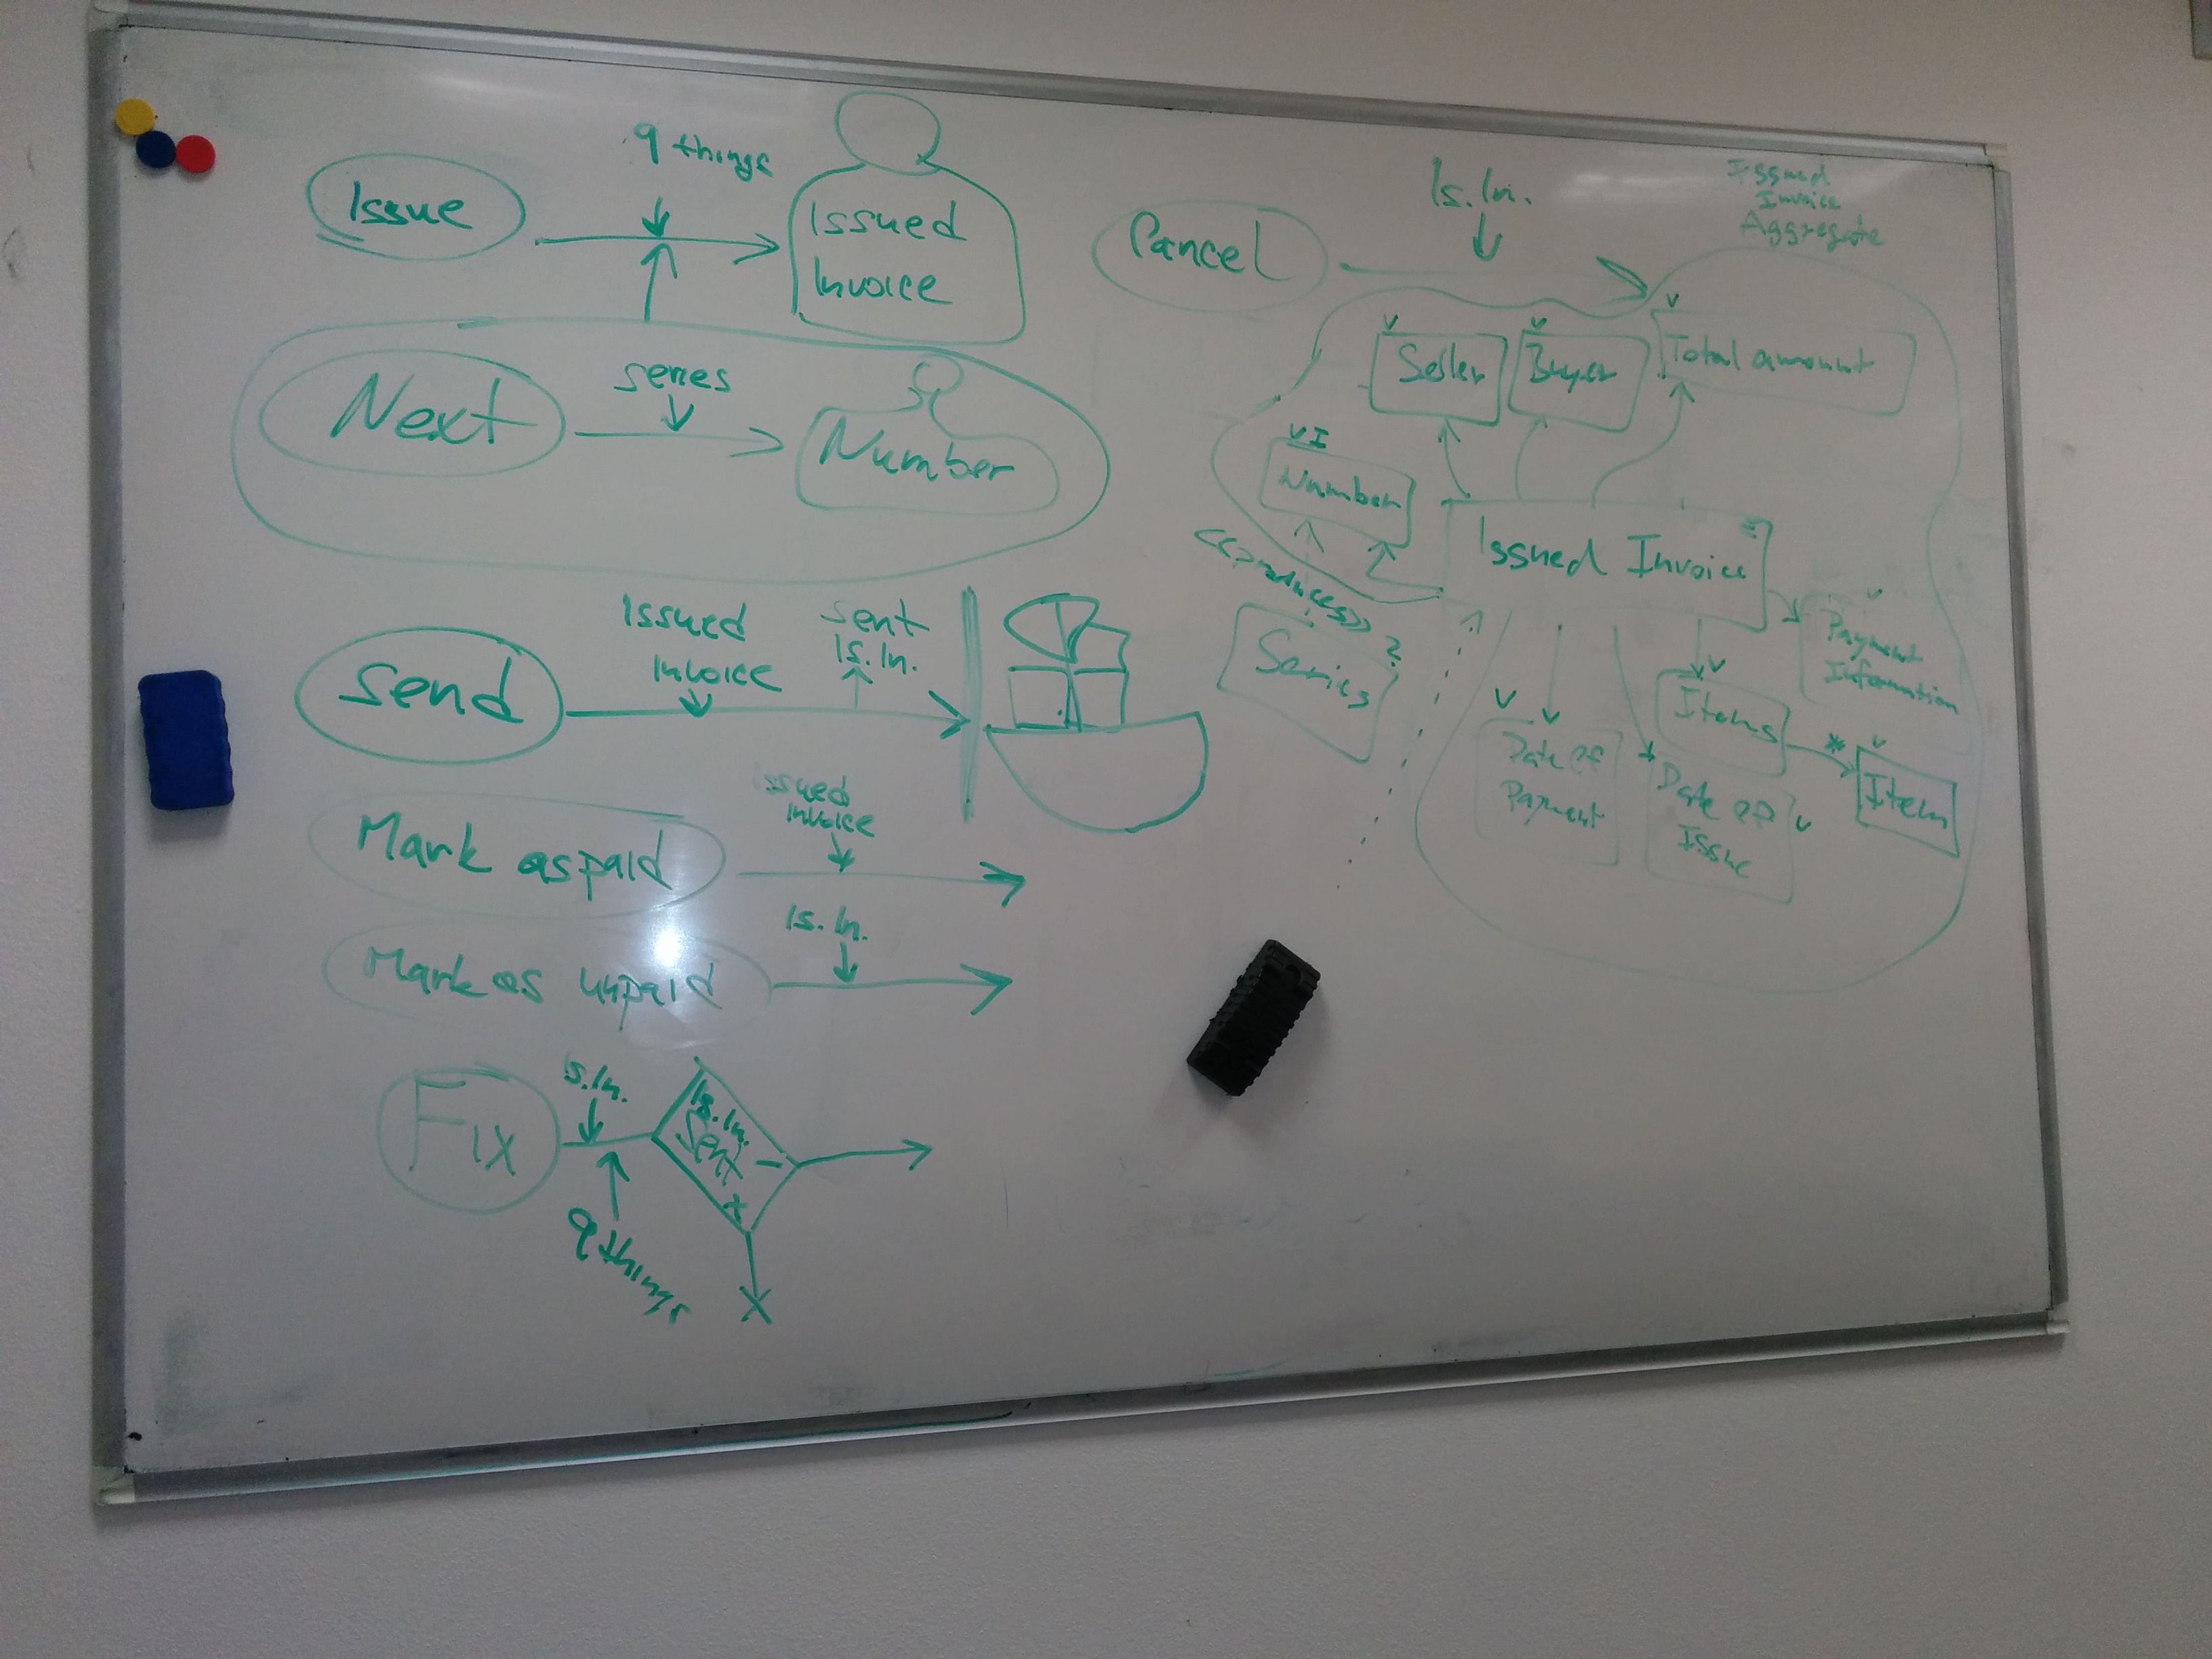 Issue
9 things
Issued
Invoice
Next
series
Number
Send
Issued
Invoice
sent
Is.In.
Mark as paid
Issued
Invoice
Mark as unpaid
Is.In.
Fix
Is.In.
9 things
Is.In.
Sent
-
+
Cancel
Is.In.
Issued
Invoice
Aggregate
V
Seller
V
Buyer
V
Total amount
VI
Number
Issued Invoice
<<produces>> ?
Series
V
Payment
Information
V
Items
*
V
Item
V
Date of
Payment
Date of
Issue
V